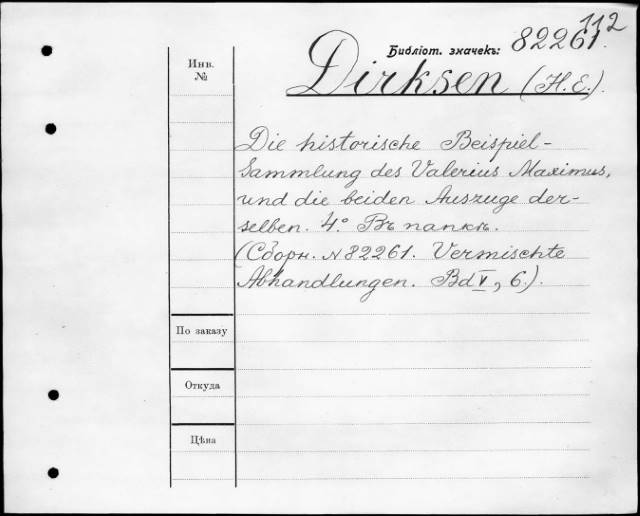 112
Библіот. значекъ: 82261.
Инв.
№
Dirksen (H. E.).
Die historische Beispiel-
Sammlung des Valerius Maximus,
und die beiden Auszuge der-
selben. 4.° Въ папкѣ.
(Сборн. N 82261. Vermischte
Abhandlungen. Bd V, 6.).
По заказу
Откуда
Цѣна